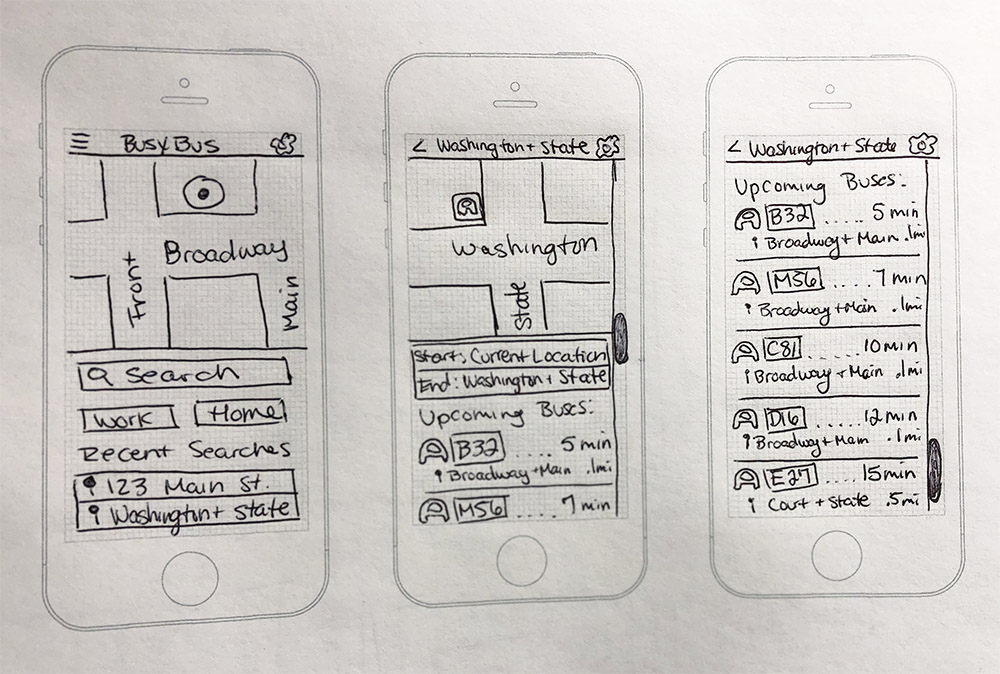 BusyBus
Broadway
Front
Main
Search
Work
Home
Recent Searches
123 Main St.
Washington + State
< Washington + State
Washington
State
Start: Current Location
End: Washington + State
Upcoming Buses:
B32 ..... 5 min
Broadway + Main .1mi
M56 ..... 7 min
< Washington + State
Upcoming Buses:
B32 ..... 5 min
Broadway + Main .1mi
M56 ..... 7 min
Broadway + Main .1mi
C81 ...... 10 min
Broadway + Main .1mi
D16 ...... 12 min
Broadway + Main .1mi
E27 ..... 15 min
Court + State .5mi